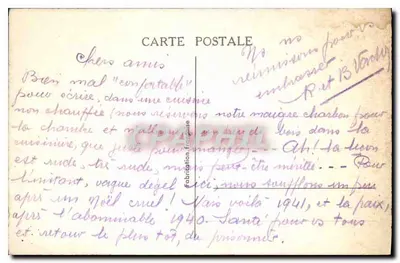 CARTE POSTALE
Chers amis
Bien mal "confortable"
pour écrire, dans une cuisine
non chauffée (nous réservons notre maigre charbon pour
la chambre et bois dans la
cuisinière, que pour manger - Ah! la leçon
est rude, très rude, mais peut-être méritée --- Pour
l'instant, vague dégel ici, nous soufflons un peu
après un Noël cruel! Mais voilà 1941, et la paix,
après l'abominable 1940. Santé pour vs tous
et retour le plus tôt, du prisonnier
Ns ns
réunissons pour vs
embrasser
R et B
Fabrication Française